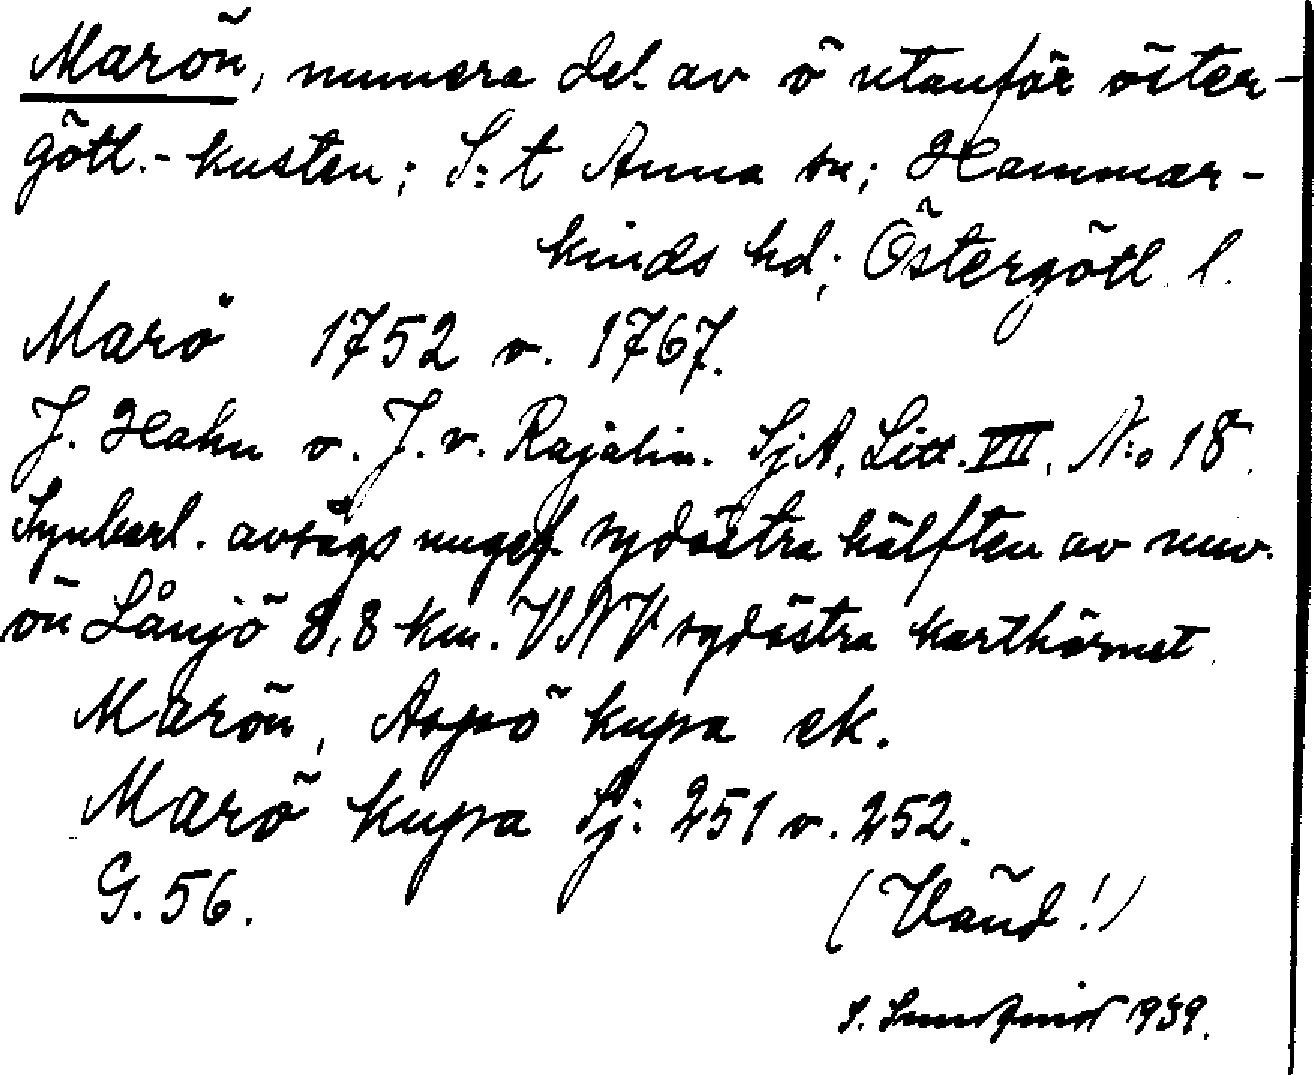 Marön, numera del av ö utanför öster-
götl.-kusten; S:t Anna sn; Hammar-
kinds hd; Östergötl. l.
Marö 1752 o. 1767.
J. Hahn o. J. v. Rajalin. SjA. Litt. VIII. N:o 18.
Synbarl. avsågs ungef. sydöstra hälften av nuv.
ön Långö 8,8 km. VNV sydöstra karthörnet.
Marön, Aspö kupa ek.
Marö kupa Sj: 251 o. 252.
G. 56.
(Vänd!)
S. 1939.